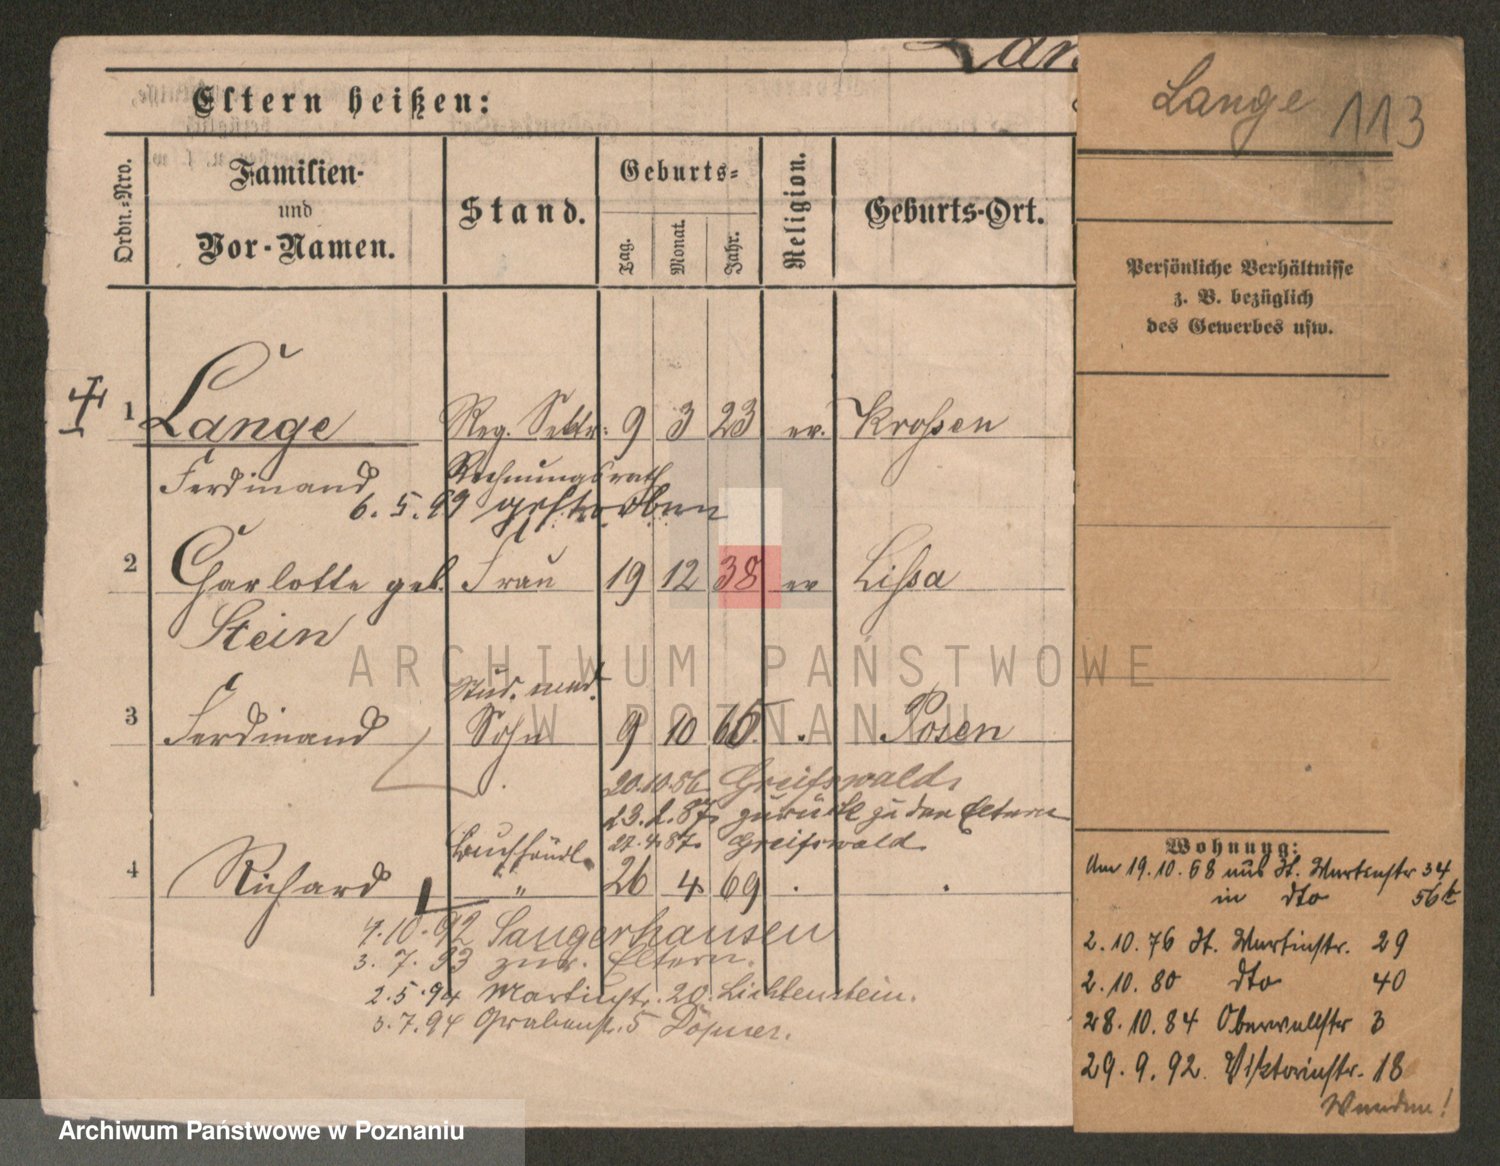 Lange 113
Eltern heißen:
Ordn.-Nro.
Familien-
und
Vor-Namen.
Stand.
Geburts-
Tag.
Monat.
Jahr.
Religion.
Geburts-Ort.
Persönliche Verhältnisse
z. B. bezüglich
des Gewerbes usw.
1 Lange Reg. Sektr: 9 3 23 ev. Kroßen
Ferdinand Rechnungsrath
6. 5. 99 gestorben
2 Charlotte geb. Frau 19 12 38 ev Lißa
Stein
Stud. med.
3 Ferdinand Sohn 9 10 65 Posen
20.10.86 Greifswald
23.2.87. zurück zu den Eltern
22.4.87. Greifswald.
Buchhändl.
4 Richard " 26 4 69
4.10.92 Sangerhausen
3. 7. 93 zur. Eltern.
2.5.94 Martinstr. 20. Lichtenstein.
3.7.94 Grabenst. 5
Wohnung:
Am 19.10.68 aus St. Martinstr 34
in dto 56
2.10.76 St. Martinstr. 29
2.10.80 dto 40
28.10.84 Oberwallstr 3
29.9.92. Viktoriastr. 18
Wenden!
ARCHIWUM PAŃSTWOWE
W POZNANIU
Archiwum Państwowe w Poznaniu